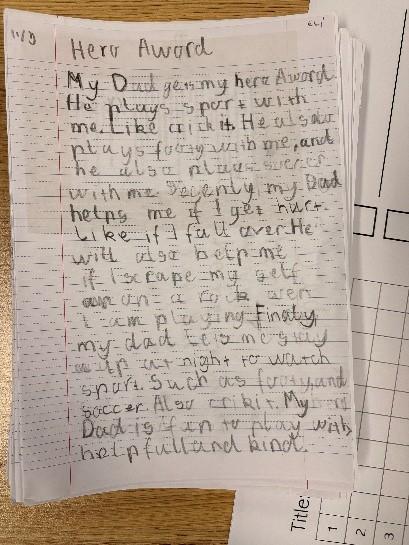 11/9
Hero Award
My Dad gets my hero Award.
He plays sport with
me. Like crickit. He also
plays footy with me, and
he also plays soccer
with me. Secenly, my Dad
helps me if I get hurt.
Like if I fall over. He
will also help me
if I scrape my self
on a rock wen
I am playing. Finaly
my dad lets me stay
up at night to watch
sport. Such as footy, and
soccer. Also crikit. My
Dad is fun to play with,
helpfull and kind.
Title:
1
2
3